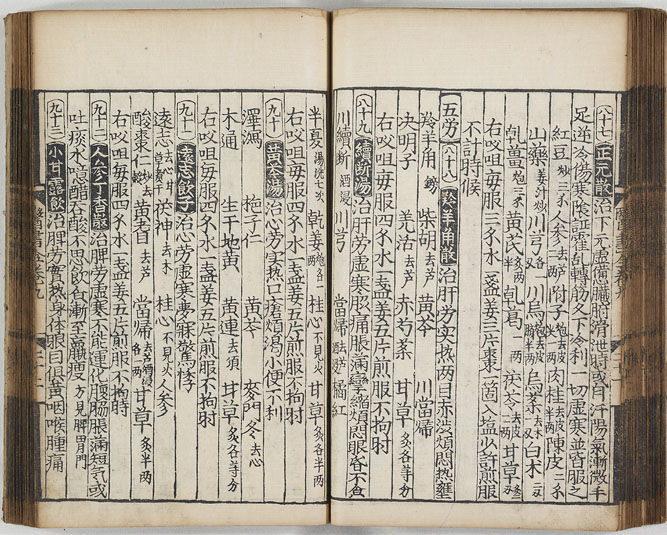 八十七 正元散 治下元虛憊臟腑滑泄時或自汗陽氣漸微手
足逆冷傷寒陰証霍乱轉筋久下冷利一切虛寒並皆服之
紅豆炒三錢 人參二兩去芦 附子炮去皮 肉桂去皮半兩 陳皮二錢
山藥姜汁炒 川芎 川烏炮去皮 烏藥去木 白朮二兩
乾薑炮三錢 黃芪炙 乾葛一兩 茯苓去皮 甘草炙
右㕮咀每服三錢水一盞姜三片棗一箇入塩少許煎服
不計時候
五勞 八十八 羚羊角散 治肝勞实热兩目赤澁煩悶热壅
羚羊角鎊 柴胡去芦 黃芩 川當歸
决明子 羌活去芦 赤芍藥 甘草炙各等分
右㕮咀每服四錢水一盞姜五片煎服不拘時
八十九 續斷湯 治肝勞虛寒脇痛脹滿攣縮煩悶眼昏不食
川續斷酒浸 川芎 當歸去芦 橘紅
半夏湯洗七次 乾姜炮各一兩 桂心不見火 甘草炙各半兩
右㕮咀每服四錢水一盞姜五片煎服不拘時
九十 黃芩湯 治心勞实热口瘡煩渴小便不利
澤瀉 梔子仁 黃芩 麥門冬去心
木通 生干地黃 黃連去須 甘草炙各等分
右㕮咀每服四錢水一盞姜五片煎服不拘時
九十一 遠志飲子 治心勞虛寒夢寐驚悸
遠志 茯神去木 桂心不見火 人參
酸棗仁炒去殼 黃耆去芦 當歸去芦酒浸各一兩 甘草炙半兩
右㕮咀每服四錢水一盞姜五片煎服不拘時
九十二 人參丁香散 治脾勞虛寒不能運化腹腸脹滿短氣或
吐痰水噫醋吞酸不思飲食漸至羸瘦方見脾胃門
九十三 小甘露飲 治脾勞实热身体眼目俱黃咽喉腫痛
醫書全卷九
二十二